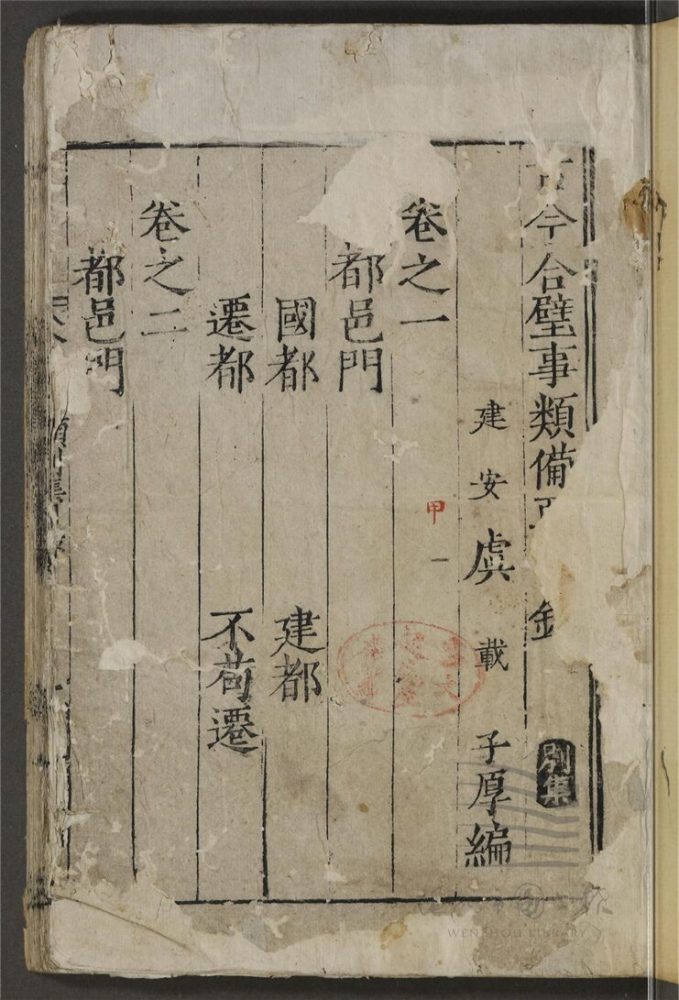 古今合璧事類備 别集
建安虞載子厚編
甲一
卷之一
都邑門
國都 建都
遷都 不苟遷
卷之二
都邑門
WENZHOU LIBRARY